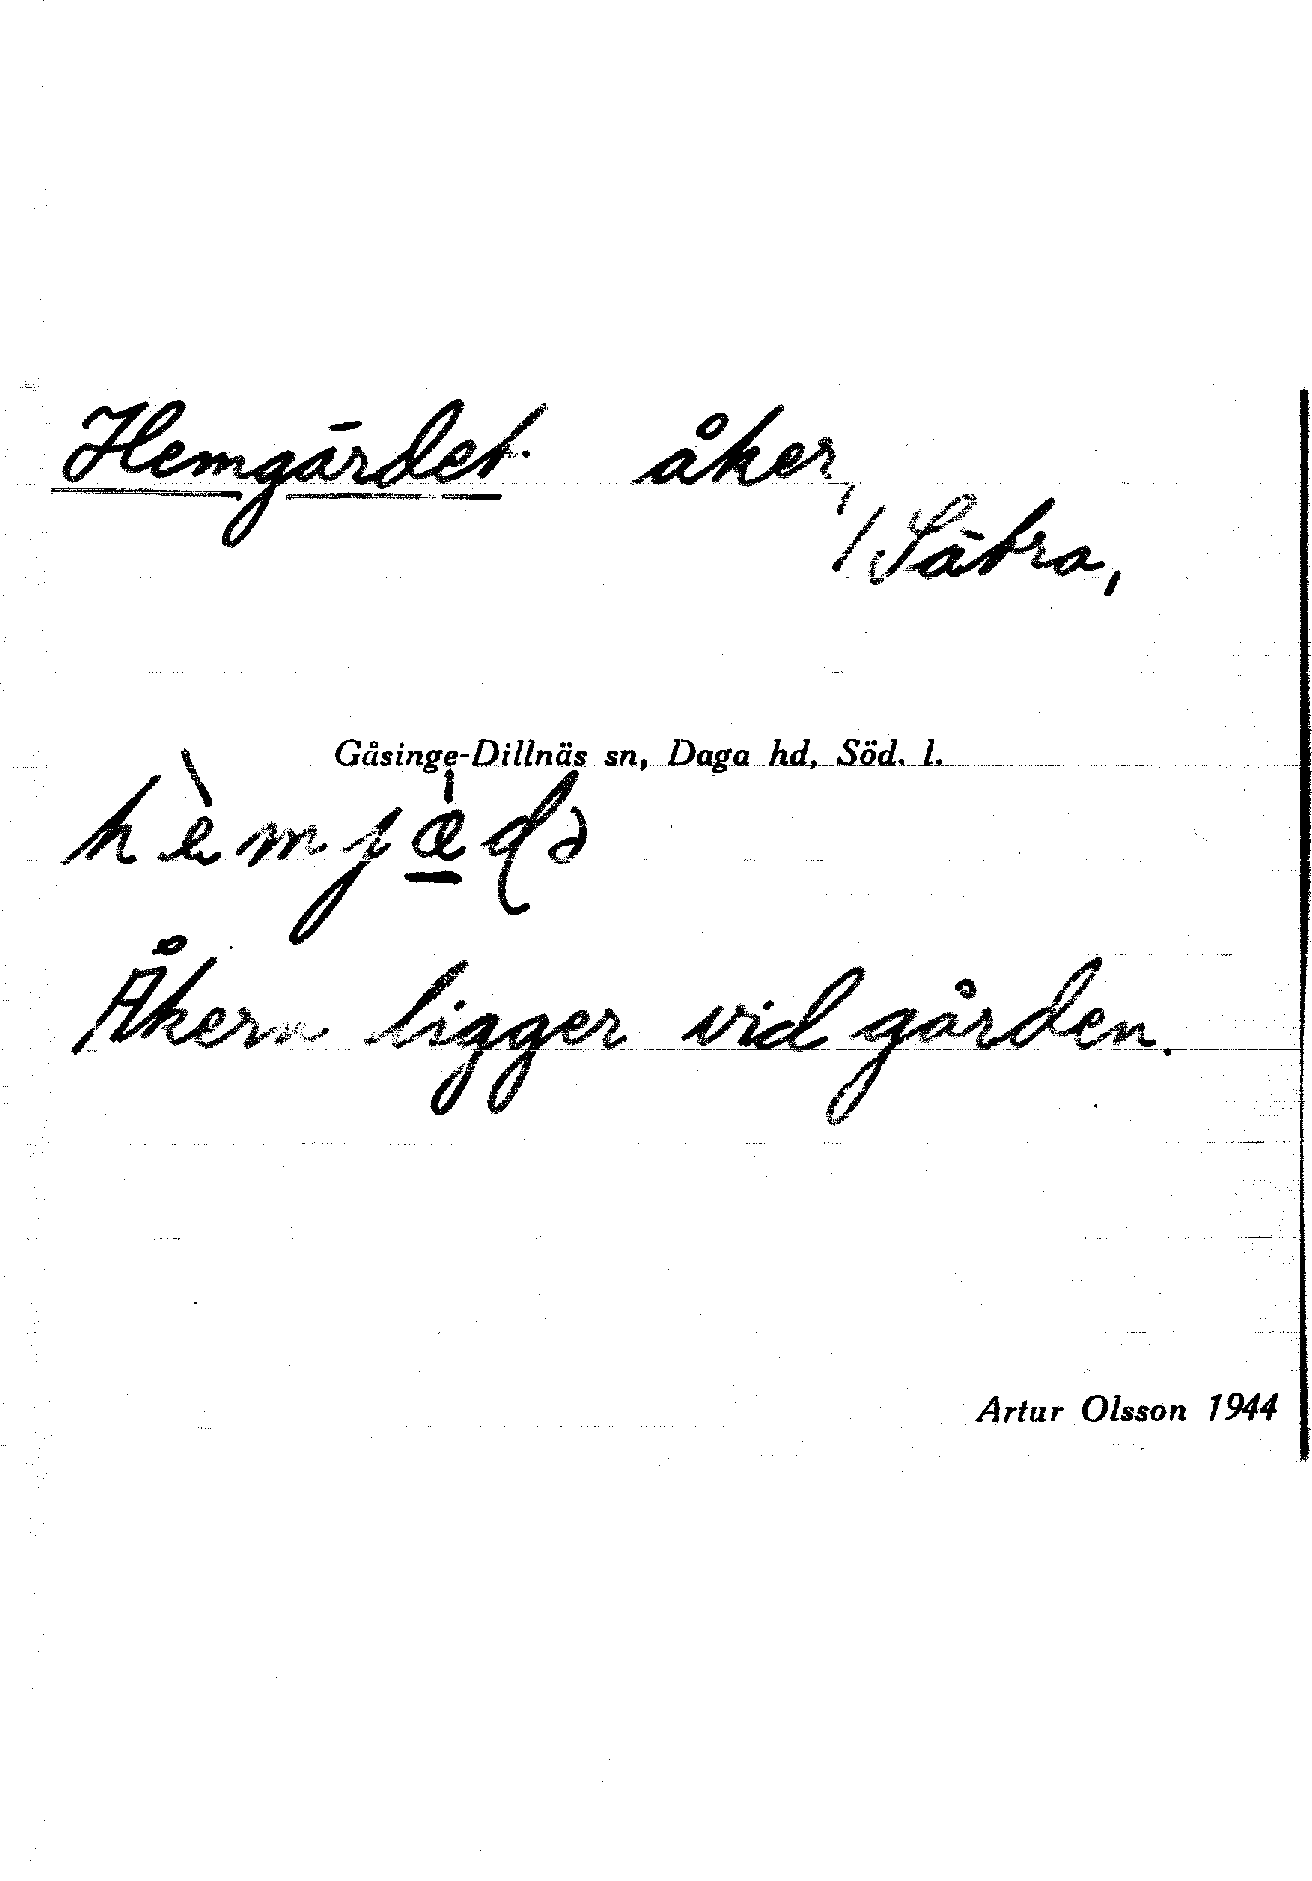 Hemgärdet. åker,
/ Sätra,
Gåsinge-Dillnäs sn, Daga hd, Söd. l.
hèmjæ̲̍ɖə
Åkern ligger vid gården.
Artur Olsson 1944